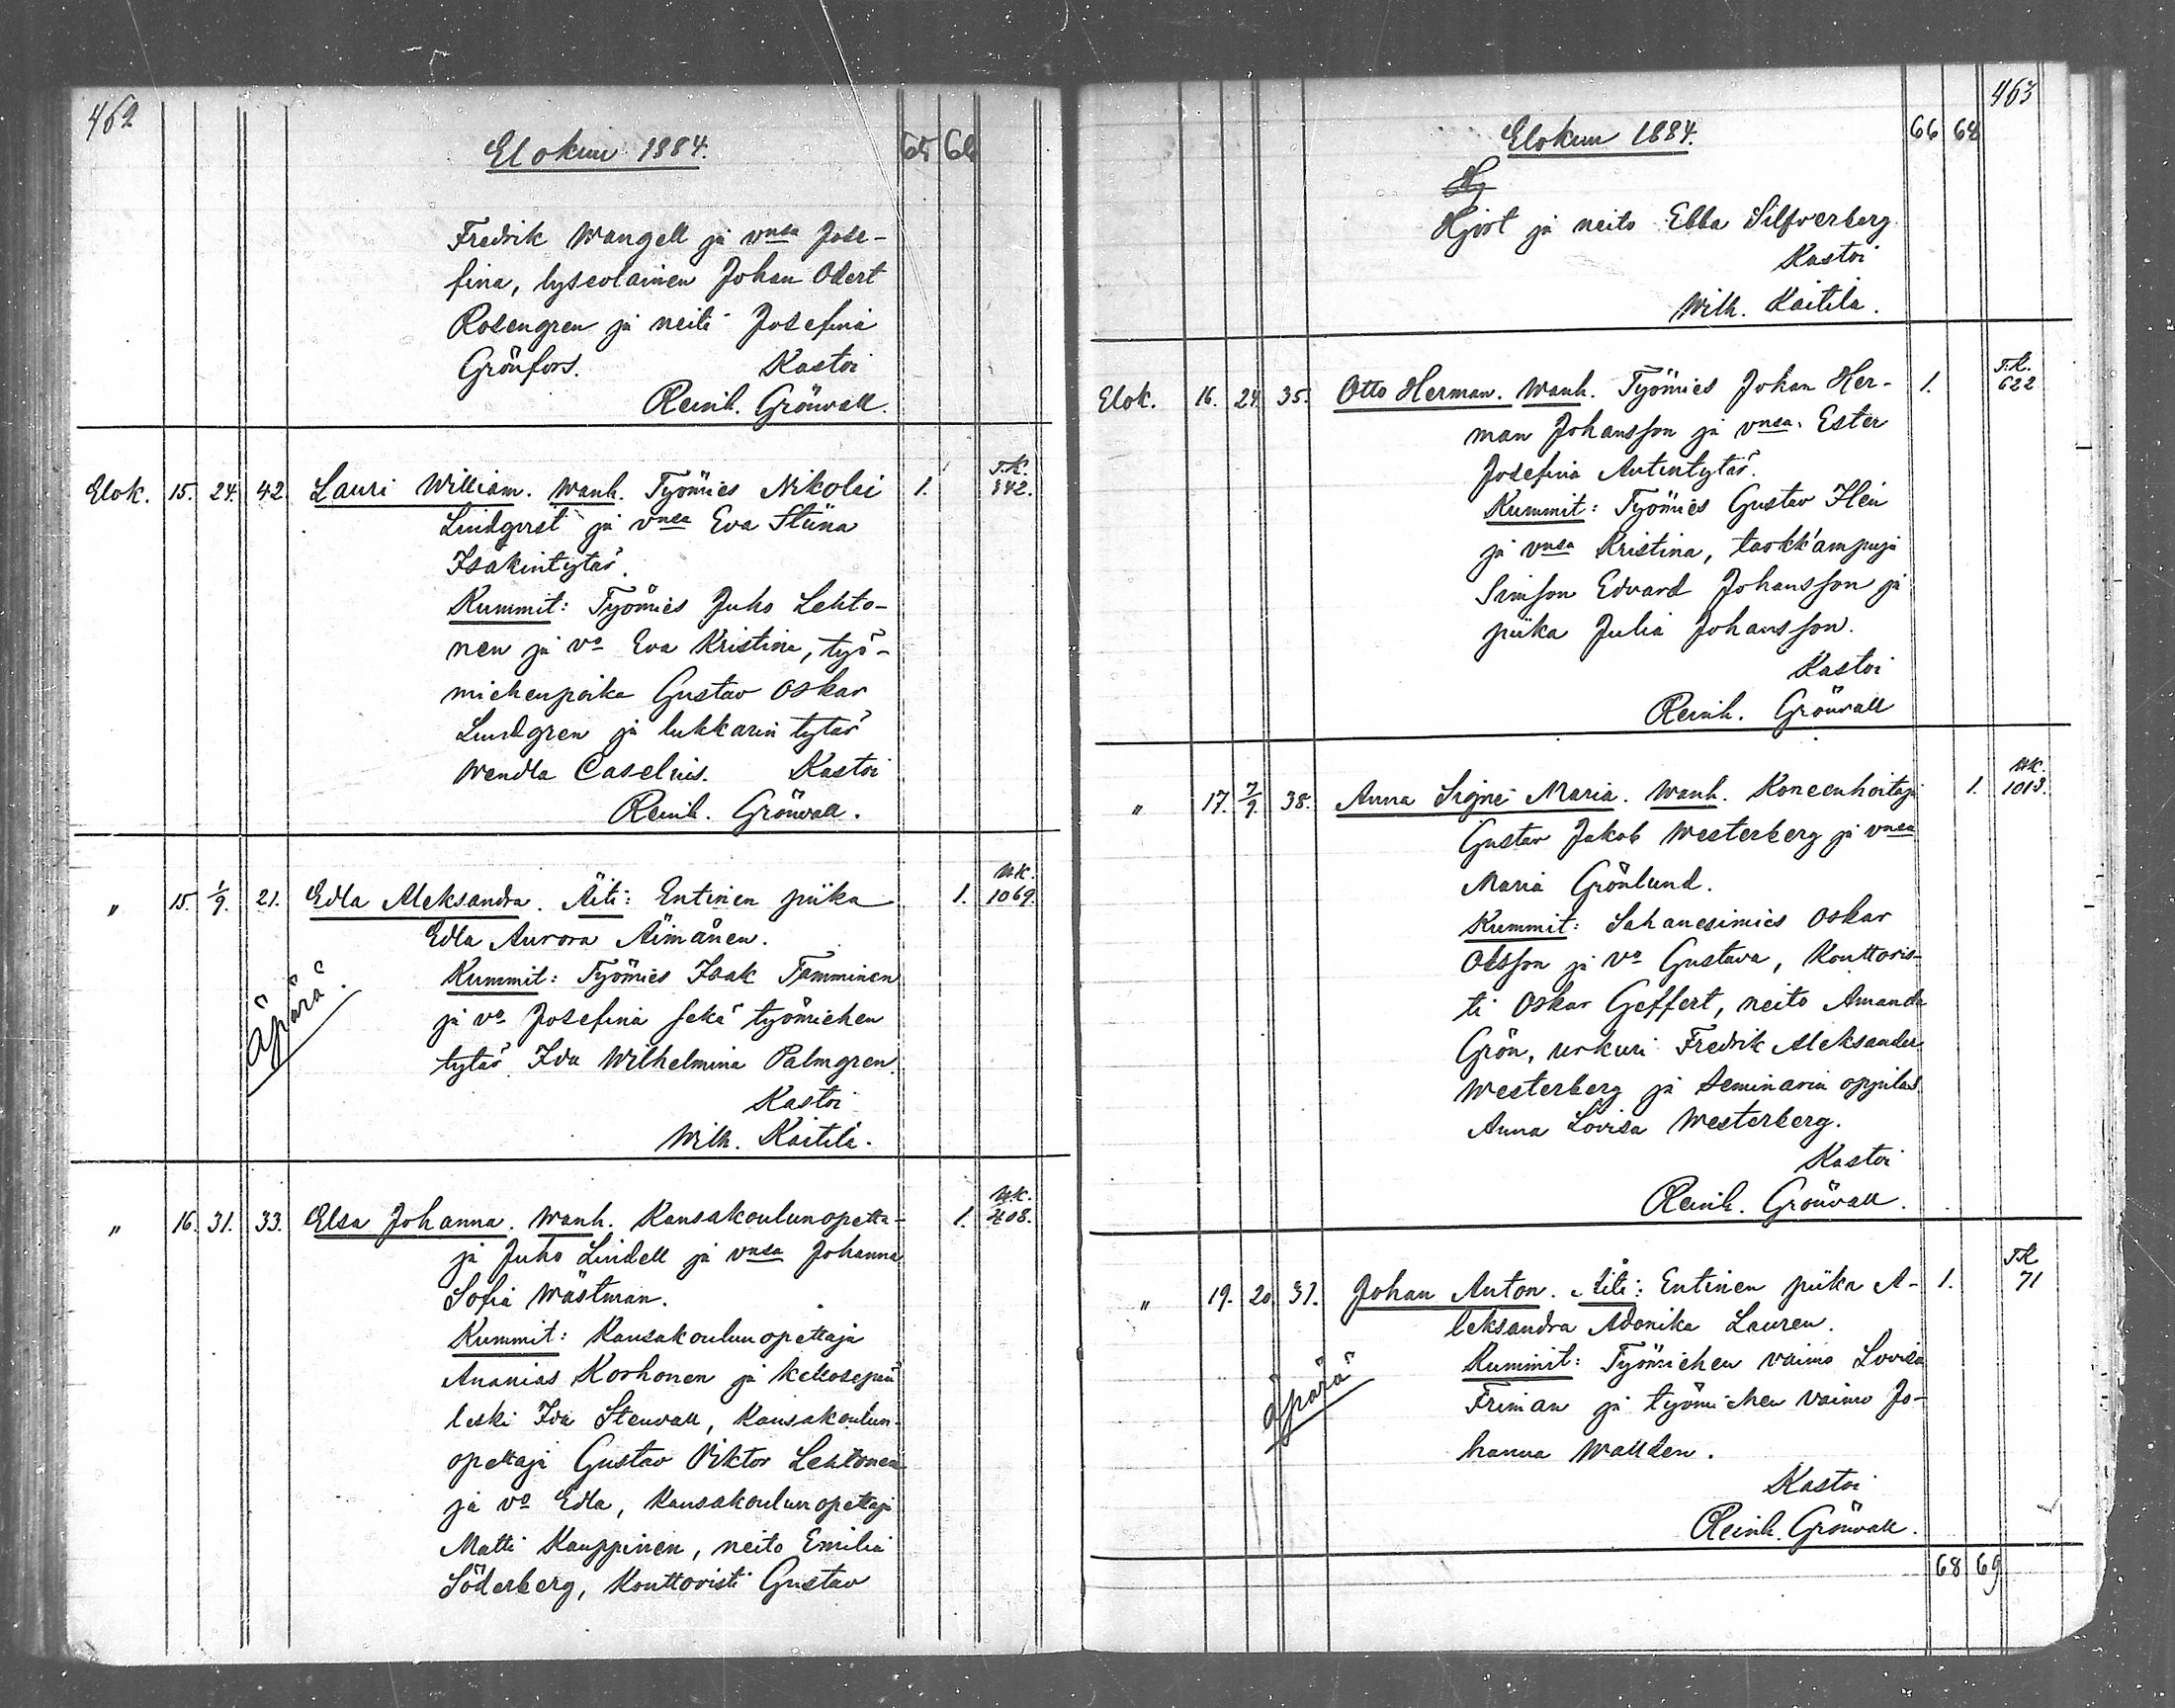 462
Elokuu 1884.
65 66
Fredrik Wangell ja vnsa Jose-
fina, lyseolainen Johan Odert
Rosengren ja neiti Josefina
Grönfors. Kastoi
Reinh. Grönvall.
Elok. 15. 24. 42. Lauri William. Wanh. Työmies Nikolai 1. T.K. 342.
Lindqvist ja vnsa Eva Stiina
Isakintytär.
Kummit: Työmies Juho Lehto-
nen ja vo Eva Kristina, työ-
miehenpoika Gustav Oskar
Lindgren ja lukkarin tytär
Wendla Caselius. Kastoi
Reinh. Grönvall.
" 15. 1/9. 21. Edla Aleksandra. Äiti: Entinen piika 1. U.K. 1069.
Edla Aurora Äimänen.
Kummit: Työmies Isak Tamminen
äpärä.
ja vo Josefina sekä työmiehen
tytär Ida Wilhelmina Palmgren.
Kastoi
Wilh. Kaitila.
" 16. 31. 33. Elsa Johanna. Wanh. Kansakoulunopetta- 1. U.K. 408.
ja Juho Lindell ja vnsa Johanna
Sofia Wästman.
Kummit: Kansakoulunopettaja
Ananias Korhonen ja kellosepän
leski Ida Stenvall, Kansakoulun-
opettaja Gustav Viktor Lehtonen
ja vo Edla, Kansakoulunopettaja
Matti Kauppinen, neito Emilia
Söderberg, Konttoristi Gustav
463
Elokuu 1884.
66 68
Hj
Hjort ja neito Ebba Silfverberg.
Kastoi
Wilh. Kaitila.
Elok. 16. 24. 35. Otto Herman. Wanh. Työmies Johan Her- 1. T.K. 622
man Johansson ja vnsa Ester
Josefina Antintytär.
Kummit: Työmies Gustav Hein
ja vnsa Kristina, tarkk'ampuja
Simson Edvard Johansson ja
piika Julia Johansson.
Kastoi
Reinh. Grönvall
" 17. 7/9. 38. Anna Signe Maria. Wanh. Koneenhoitaja 1. U.K. 1013.
Gustav Jakob Westerberg ja vnsa
Maria Grönlund.
Kummit: Sahanesimies Oskar
Olsson ja vo Gustava, Konttoris-
ti Oskar Geffert, neito Amanda
Grön, urkuri Fredrik Aleksander
Westerberg ja Seminarin oppilas
Anna Lovisa Westerberg.
Kastoi
Reinh. Grönvall.
" 19. 20. 31. Johan Anton. Äiti: Entinen piika A- 1. T.K 71
leksandra Adonika Lauren.
Kummit: Työmiehen vaimo Lovisa
äpärä
Friman ja työmiehen vaimo Jo-
hanna Wallden.
Kastoi
Reinh. Grönvall.
68 69